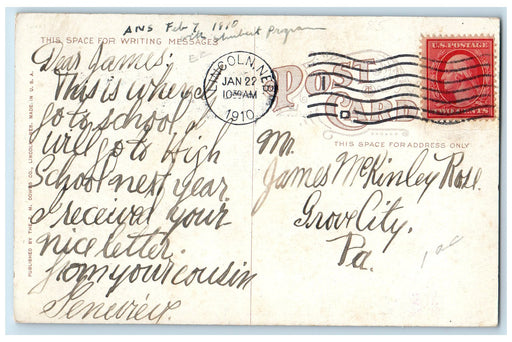 ANS Feb 7 1910
with Schubert Program
THIS SPACE FOR WRITING MESSAGES
Dear James;
This is where I
go to school, I
will go to High
School next year.
I received your
nice letter.
from your cousin
Genevieve.
PUBLISHED BY THE CO., LINCOLN, NEB. MADE IN U.S.A.
LINCOLN, NEB.
JAN 22
10 30 AM
1910
POST
CARD
U.S. POSTAGE
TWO CENTS
THIS SPACE FOR ADDRESS ONLY
Mr.
James McKinley Rose.
Grove City.
Pa.